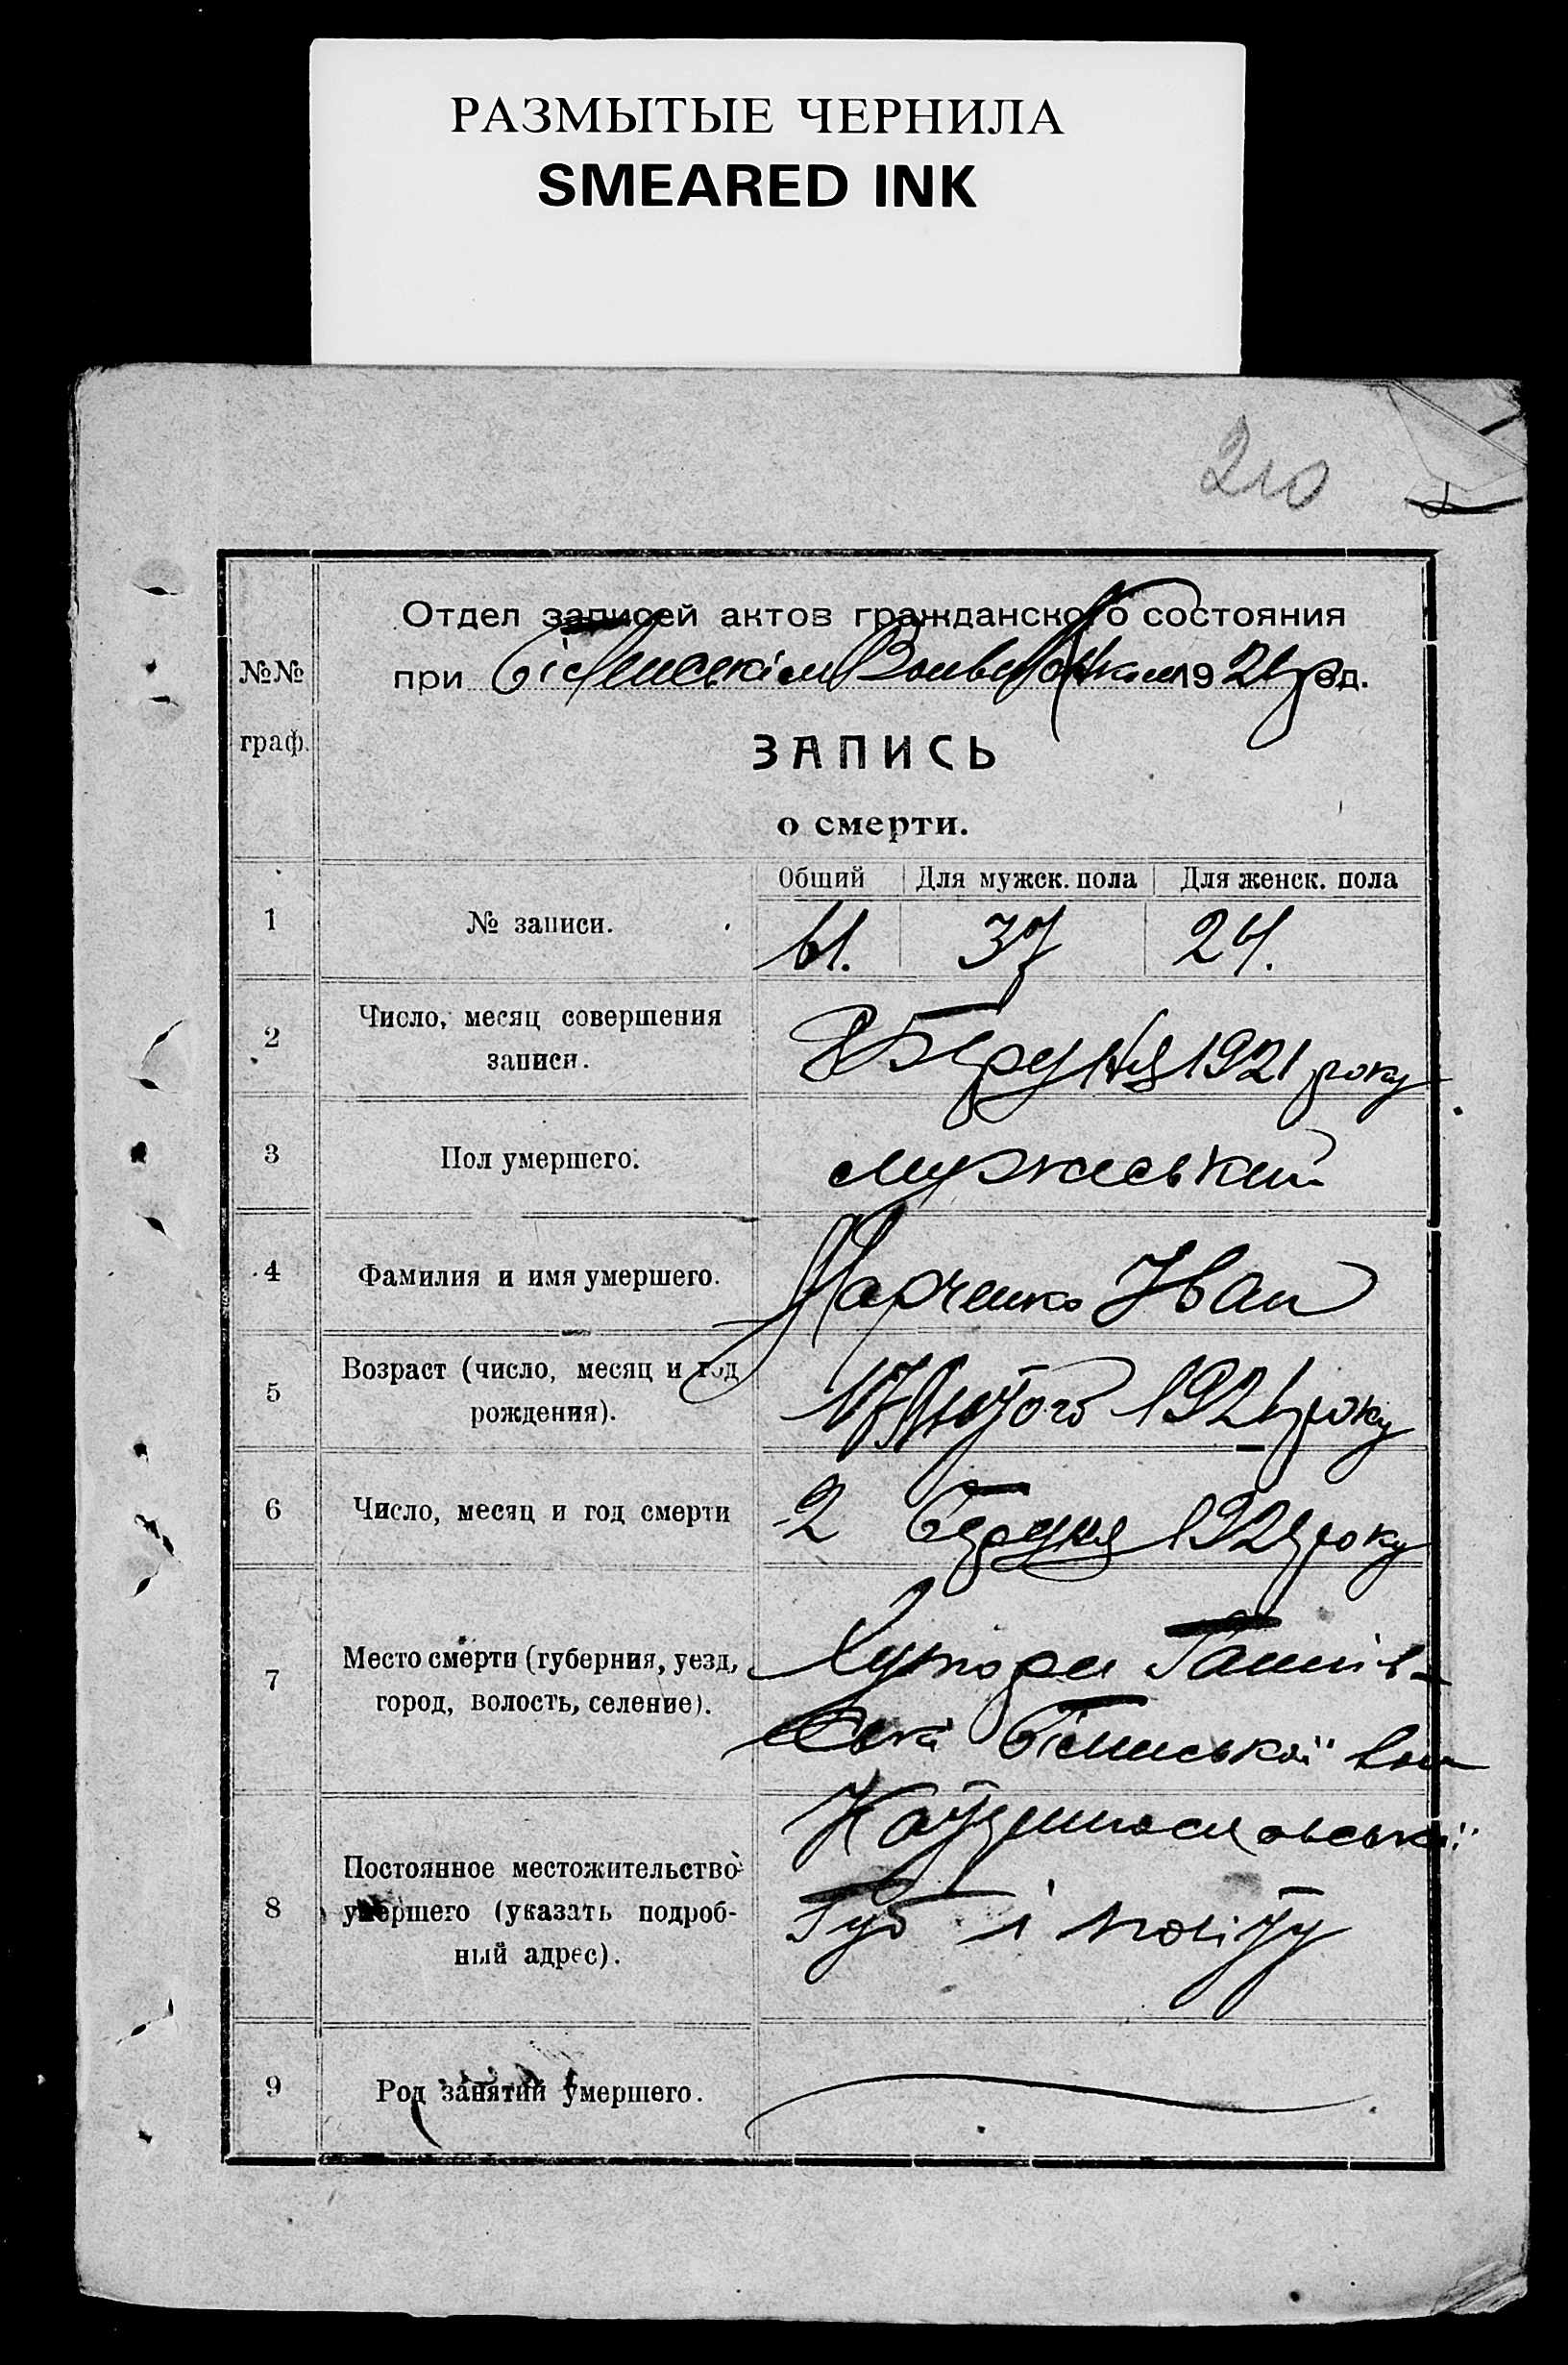 РАЗМЫТЫЕ ЧЕРНИЛА
SMEARED INK
210
Отдел записей актов гражданского состояния
при 1921 год.
№№
граф.
ЗАПИСЬ
о смерти.
Общий Для мужск. пола Для женск. пола
1 № записи. 61. 37 24.
2 Число, месяц совершения
записи. Березня 1921 року
3 Пол умершего. мужеський
4 Фамилия и имя умершего. Марченко Іван
5 Возраст (число, месяц и год
рождения). 17 Лютого 1921 року
6 Число, месяц и год смерти 2 березня 1921 року
7 Место смерти (губерния, уезд,
город, волость, селение).
Хутори
вол
8 Постоянное местожительство
умершего (указать подроб-
ный адрес).
Губ і повіту
9 Род занятий умершего.